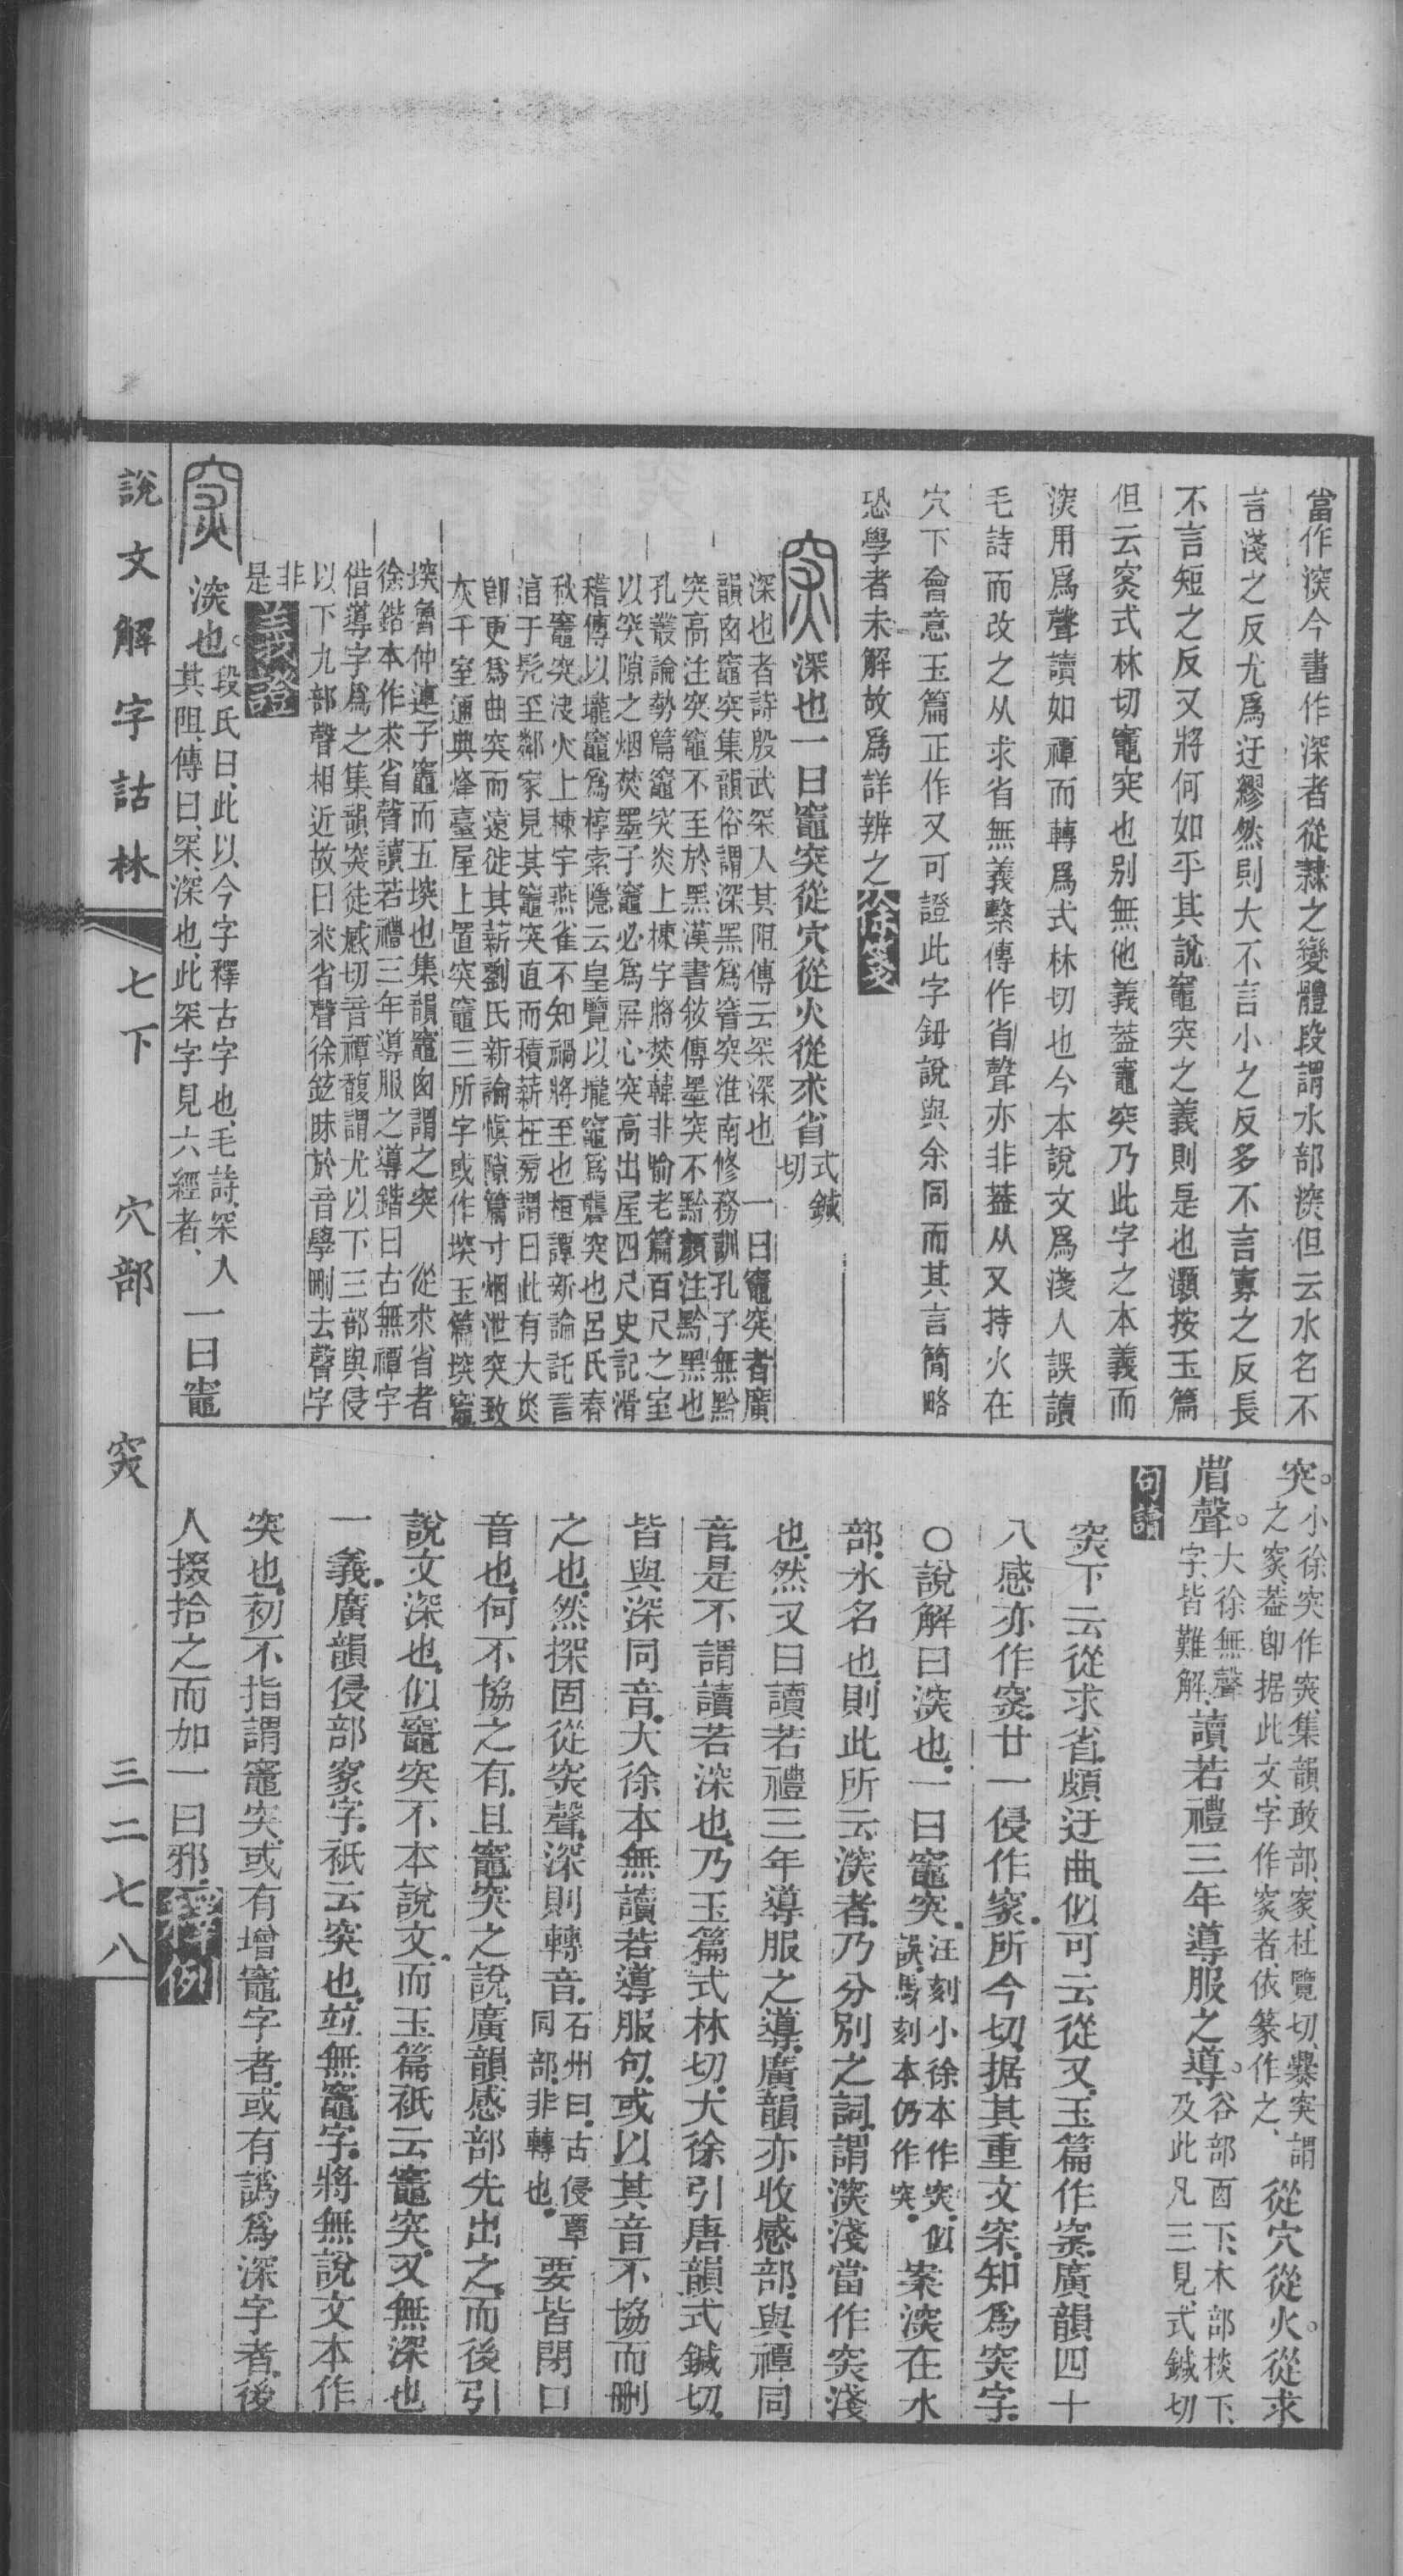 當作湥今書作深者從隸之變體段謂水部湥但云水名不
言淺之反尤爲迂繆然則大不言小之反多不言寡之反長
不言短之反又將何如乎其說竈突之義則是也灝按玉篇
但云穾式林切竈突也别無他義葢竈突乃此字之本義而
湥用爲聲讀如禫而轉爲式林切也今本說文爲淺人誤讀
毛詩而改之从求省無義繫傳作省聲亦非葢从又持火在
穴下會意玉篇正作又可證此字鈕說與余同而其言簡略
恐學者未解故爲詳辨之徐箋
深也一曰竈突從穴從火從求省式鍼切
深也者詩殷武罙入其阻傳云罙深也 一曰竈突者廣
韻囱竈突集韻俗謂深黑爲窨突淮南修務訓孔子無黔
突高注突竈不至於黑漢書敘傳墨突不黔顏注黔黑也
孔叢論勢篇竈突炎上棟字將焚韓非喻老篇百尺之室
以突隙之烟焚墨子竈必爲屏心突高出屋四尺史記滑
稽傳以壠竈爲椁索隱云皇覽以壠竈爲礱突也呂氏春
秋竈突決火上棟宇燕雀不知禍將至也桓譚新論託言
淯于髡至鄰家見其竈突直而積薪在旁謂曰此有大災
卽更爲曲突而遠徙其薪劉氏新論愼隙篇寸烟泄突致
灰千室通典烽臺屋上置突竈三所字或作堗玉篇堗竈
堗魯仲連子竈而五堗也集韻竈囱謂之突 從求省者
徐鍇本作求省聲讀若禮三年導服之導鍇曰古無禫字
借導字爲之集韻突徒感切音禫馥謂尤以下三部與侵
以下九部聲相近故曰求省聲徐鉉昧於音學刪去聲字
非是義證
湥也。段氏曰、此以今字釋古字也、毛詩、罙入其阻、傳曰、罙、深也、此罙字見六經者、一曰竈
突。小徐突作穾集韻敢部、窡杜覽切、㸑突謂之窡葢卽据此文、字作窡者、依篆作之、從穴從火。從求
省聲。大徐無聲字、皆難解、讀若禮三年導服之導。谷部㐁下、木部棪下、及此凡三見、式鍼切
句讀
穾下云從求省、頗迂曲、似可云從又、玉篇作㝥、廣韻四十
八感亦作㝥、廿一侵作窡、所今切、据其重文罙、知爲穾字、
〇說解曰湥也、一曰竈突、汪刻小徐本作穾、似誤、馬刻本仍作突、案湥在水
部、水名也、則此所云湥者、乃分別之詞、謂湥淺當作穾淺
也、然又曰讀若禮三年導服之導、廣韻亦收感部、與禫同
音、是不謂讀若深也、乃玉篇式林切、大徐引唐韻式鍼切、
皆與深同音、大徐本無讀若導服句、或以其音不協而刪
之也、然探固從穾聲、深則轉音、石州曰、古侵覃同部、非轉也、要皆閉口
音也、何不協之有、且竈突之說、廣韻感部先出之、而後引
說文深也、似竈突不本說文、而玉篇祇云竈突、又無深也
一義、廣韻侵部窡字、祇云突也、竝無竈字、將無說文本作
突也、初不指謂竈突、或有增竈字者、或有譌爲深字者、後
人掇拾之而加一曰邪、釋例
說文解字詁林 七下 穴部 穾 三二七八